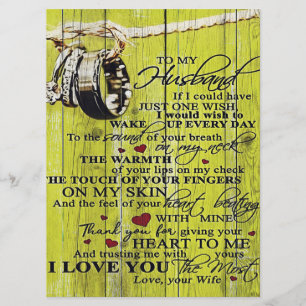 TO MY
Husband
If I could have
JUST ONE WISH,
I would wish to
WAKE UP EVERY DAY
To the sound of your breath
on my neck
THE WARMTH
of your lips on my check
THE TOUCH OF YOUR FINGERS
ON MY SKIN
And the feel of your heart beating
WITH MINE
Thank you for giving your
HEART TO ME
And trusting me with yours
I LOVE YOU The Most
Love, your Wife